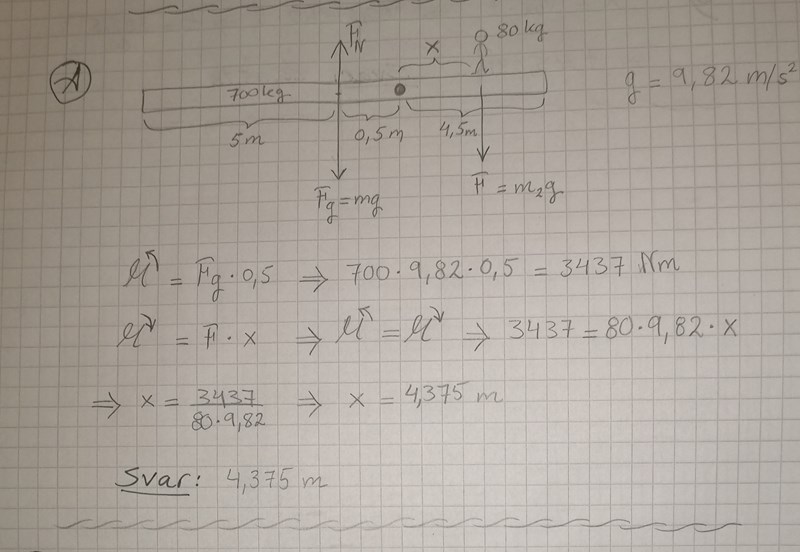 A
F_N
x
80 kg
g = 9,82 m/s²
700kg
5m
0,5m
4,5m
F_g = mg
F = m₂g
M↶ = F_g · 0,5 ⇒ 700 · 9,82 · 0,5 = 3437 Nm
M↷ = F · x ⇒ M↶ = M↷ ⇒ 3437 = 80 · 9,82 · x
⇒ x = 3437 / 80 · 9,82 ⇒ x = 4,375 m
Svar: 4,375 m